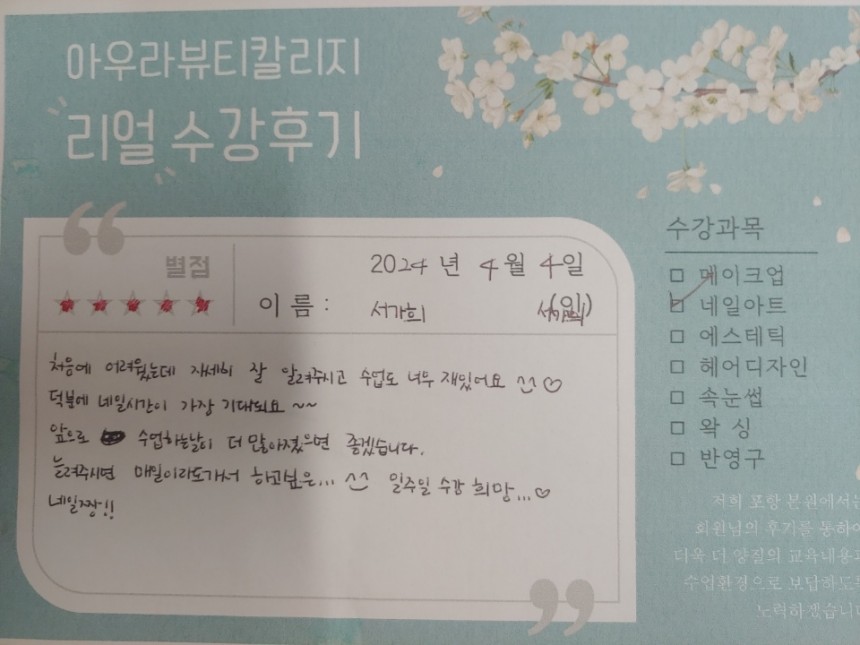 아우라뷰티칼리지
리얼 수강후기
별점
2024 년 4 월 4 일
이 름 : 서가희 서가희 (인)
처음에 어려웠는데 자세히 잘 알려주시고 수업도 너무 재밌어요 ^^ ♡
덕분에 네일시간이 가장 기대되요 ~~
앞으로 수업하는날이 더 많아졌으면 좋겠습니다.
늘려주시면 매일이라도가서 하고싶은... ^^ 일주일 수강 희망...♡
네일짱!!
수강과목
□ 메이크업
☑ 네일아트
□ 에스테틱
□ 헤어디자인
□ 속눈썹
□ 왁 싱
□ 반영구
저희 포항 본원에서는
회원님의 후기를 통하여
더욱 더 양질의 교육내용과
수업환경으로 보답하도록
노력하겠습니다